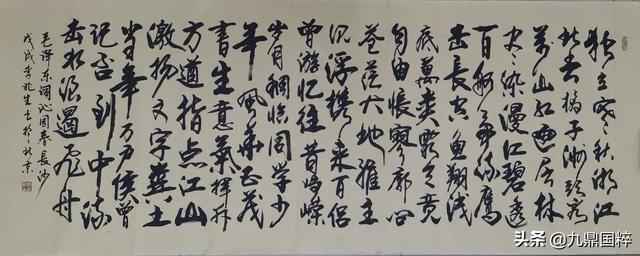 独立寒秋湘江
北去橘子洲头看
萬山红遍层林
尽染漫江碧透
百舸争流鹰
击长空鱼翔浅
底萬类霜天竞
自由怅寥廓问
苍茫大地谁主
沉浮携来百侣
曾游忆往昔峥嵘
岁月稠恰同学少
年風华正茂
书生意氣挥斥
方遒指点江山
激扬文字粪土
当年万户侯曾
记否到中流
击水浪遏飞舟
毛泽东词沁园春长沙
戊戌李兆生书於北京
头条 @九鼎国粹